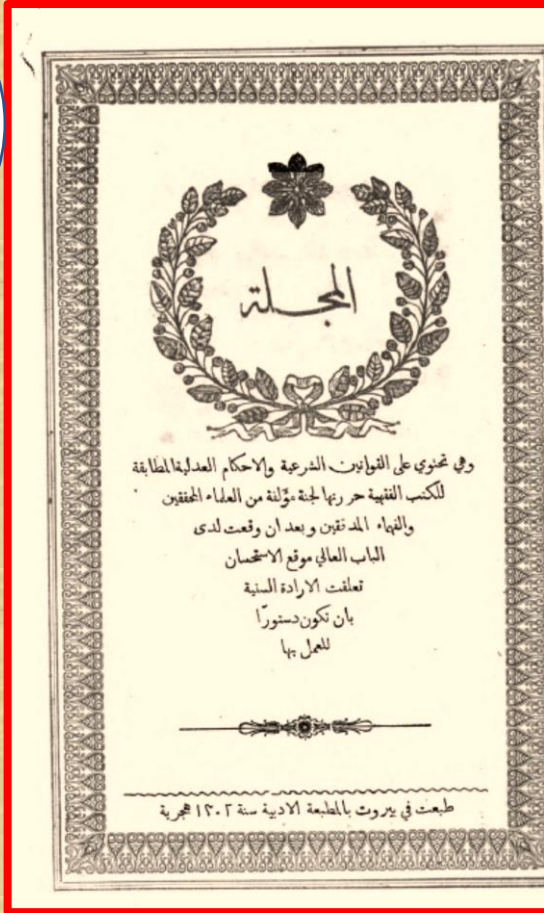 المجلة
وهي تحتوي على القوانين الشرعية والاحكام العدلية المطابقة
للكتب الفقهية حررتها لجنة مؤلفة من العلماء المحققين
والفقهاء المدققين وبعد ان وقعت لدى
الباب العالي موقع الاستحسان
تعلقت الارادة السنية
بان تكون دستورًا
للعمل بها
طبعت في بيروت بالمطبعة الادبية سنة ١٣٠٢ هجرية